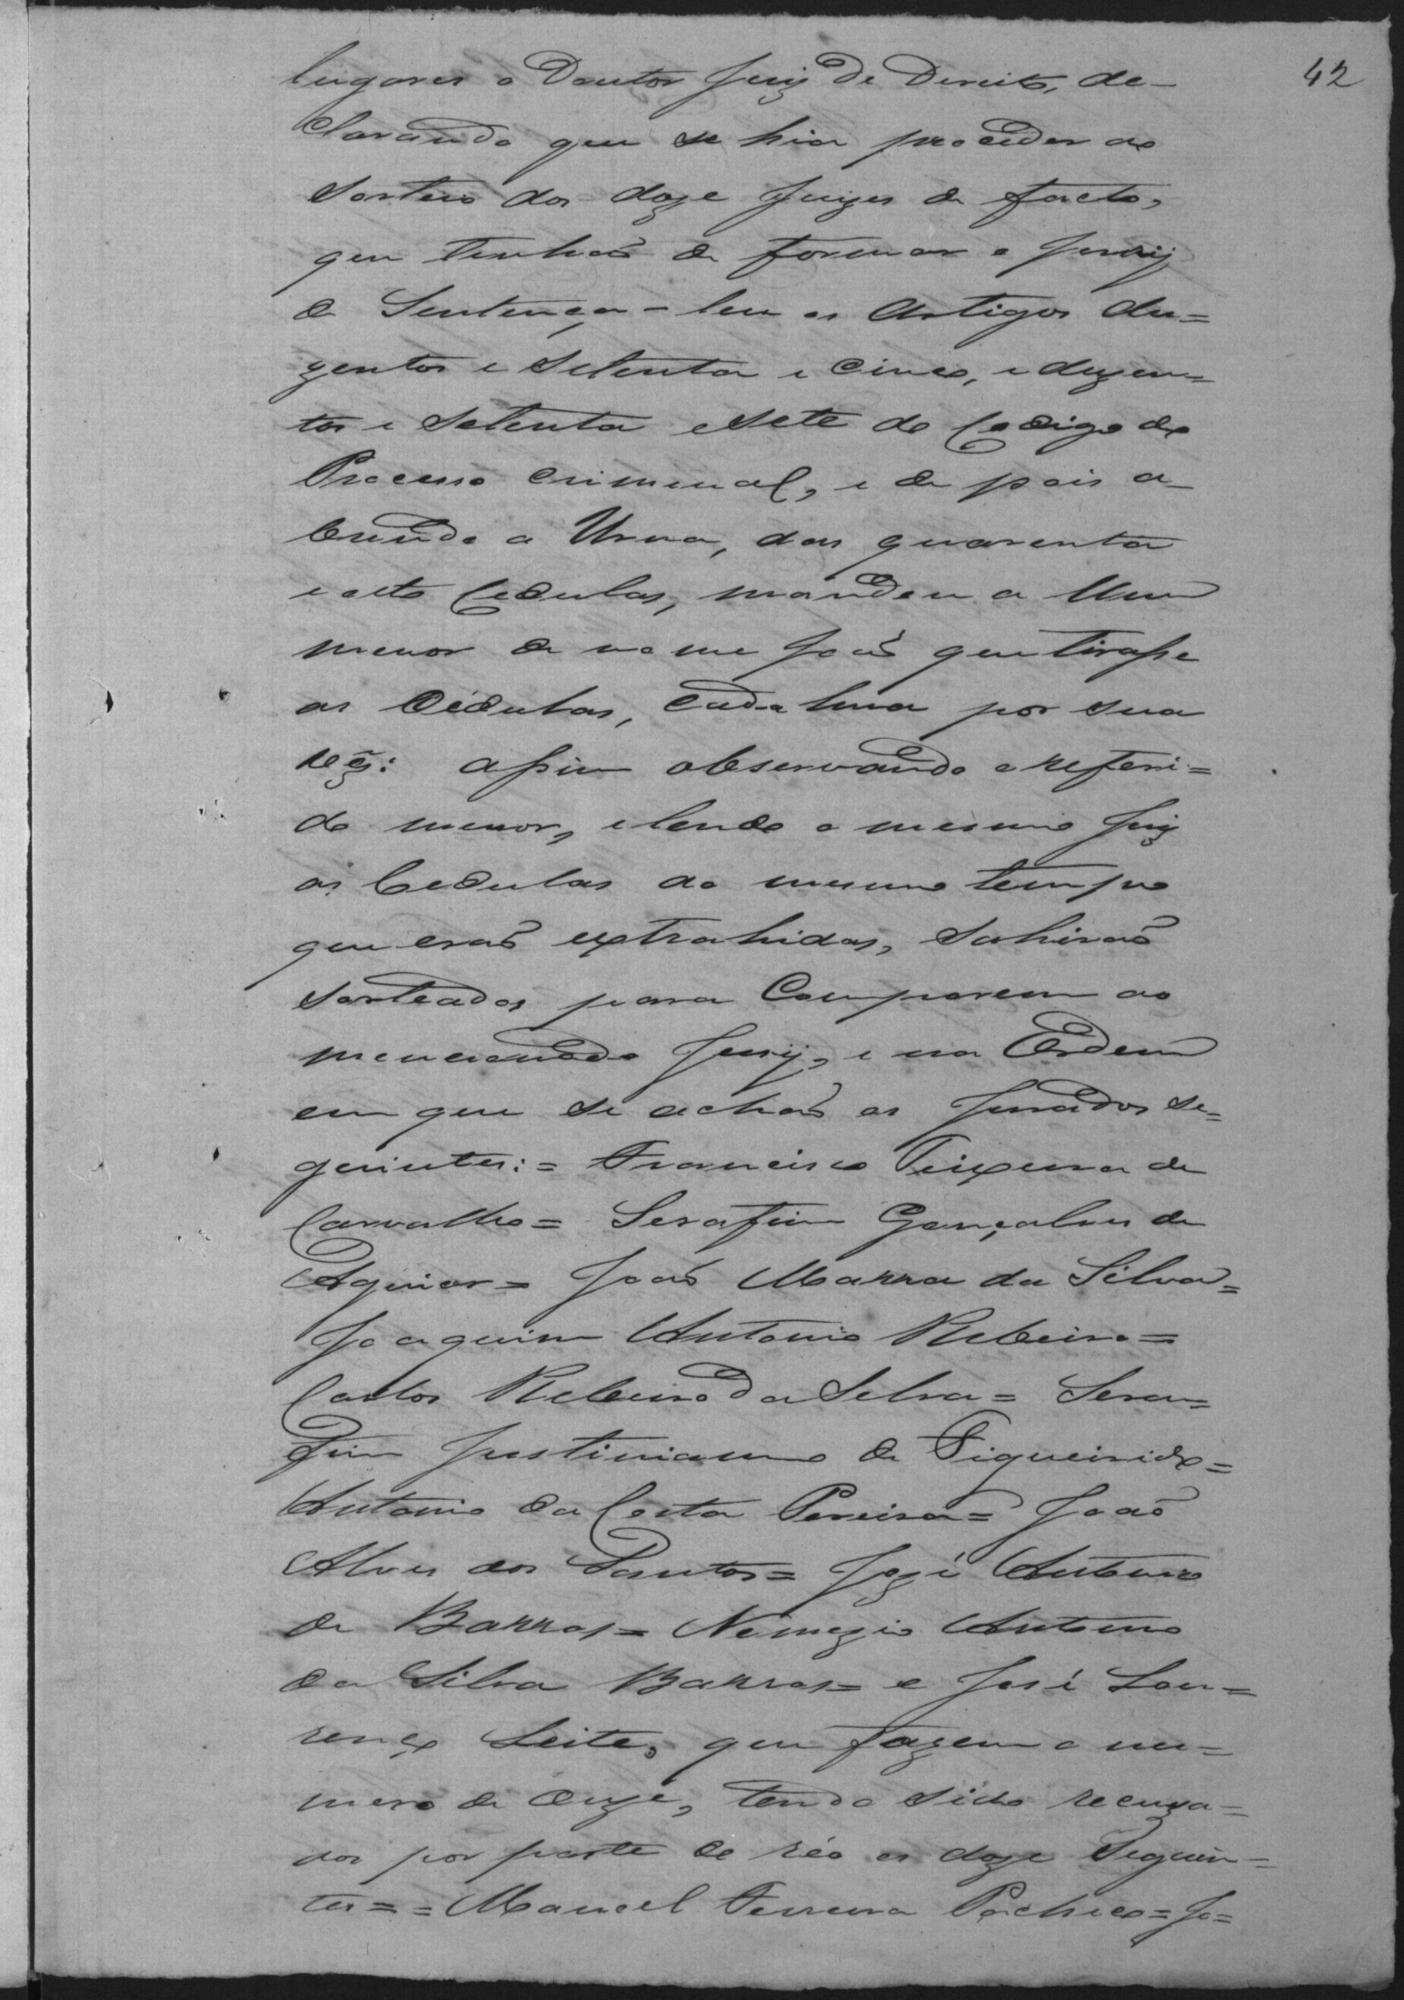 42
lugares o Doutor Juiz de Direito, de-
clarando que se hia proceder ao
sorteio dos doze Juizes de facto,
que tenhaõ de formar o Jurij
de Sentença - leu os Artigos du=
zentos e setenta e cinco, e duzen=
tos e setenta e sete do Codigo do
Processo criminal, e de pois a-
brindo a Urna, das quarenta
e oito Cedulas, mandou a Um
menor de nome Joaõ que tirasse
as Cédulas, cada huma por sua
vez: assim observando o referi=
do menor, e lendo o mesmo Juiz
as Cedulas ao mesmo tempo
que eraõ extrahidas, Sahiraõ
sorteados para Comporem ao
mencionado Jurij, e na Ordem
em que se achaõ os Jurados se=
guintes: = Francisco Teixeira de
Carvalho = Serafim Gonçalves de
Aguiar = Joaõ Marra da Silva =
Joaquim Antonio Ribeiro =
Carlos Ribeiro da Silva = Sera=
fim Justiniano de Figueirido =
Antonio da Costa Pereira = Joaõ
Alves dos Santos = Jozé Antonio
de Barros = Nemezio Antonio
da Silva Barros = e José Lou=
renço Leite, que fazem o nu=
mero de onze, tendo sido recuza=
dos por parte do réo os doze Seguin=
tes = = Manoel Ferreira Pacheco = Jo=